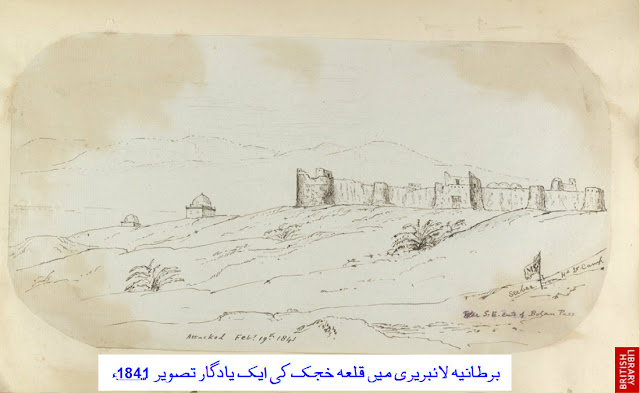 Attacked Feb. 19th 1841
S. E. end of Bolan Pass
برطانیہ لائبریری میں قلعہ خجک کی ایک یادگار تصویر 1841ء
BRITISH
LIBRARY